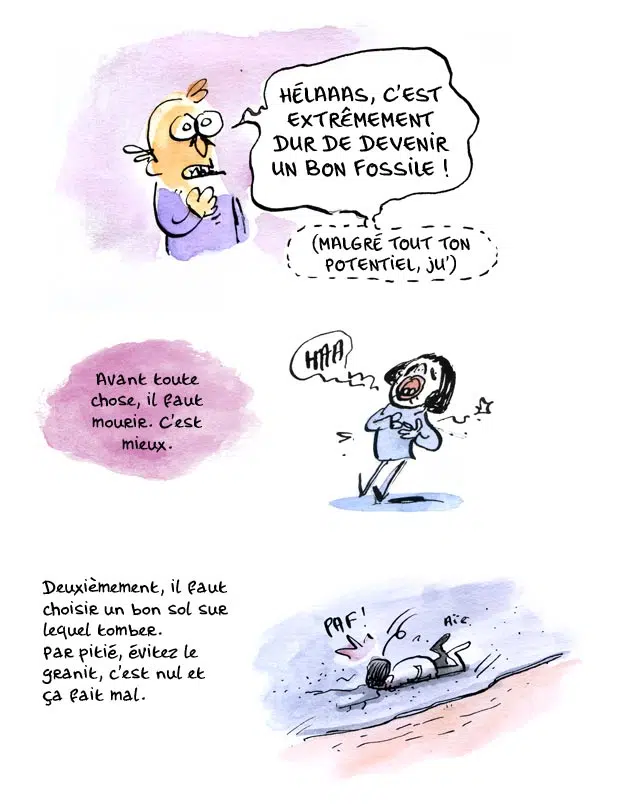 HÉLAAAS, C'EST
EXTRÊMEMENT
DUR DE DEVENIR
UN BON FOSSILE !
(MALGRÉ TOUT TON
POTENTIEL, JU')
Avant toute
chose, il faut
mourir. C'est
mieux.
HAA
Deuxièmement, il faut
choisir un bon sol sur
lequel tomber.
Par pitié, évitez le
granit, c'est nul et
ça fait mal.
PAF!
Aïe